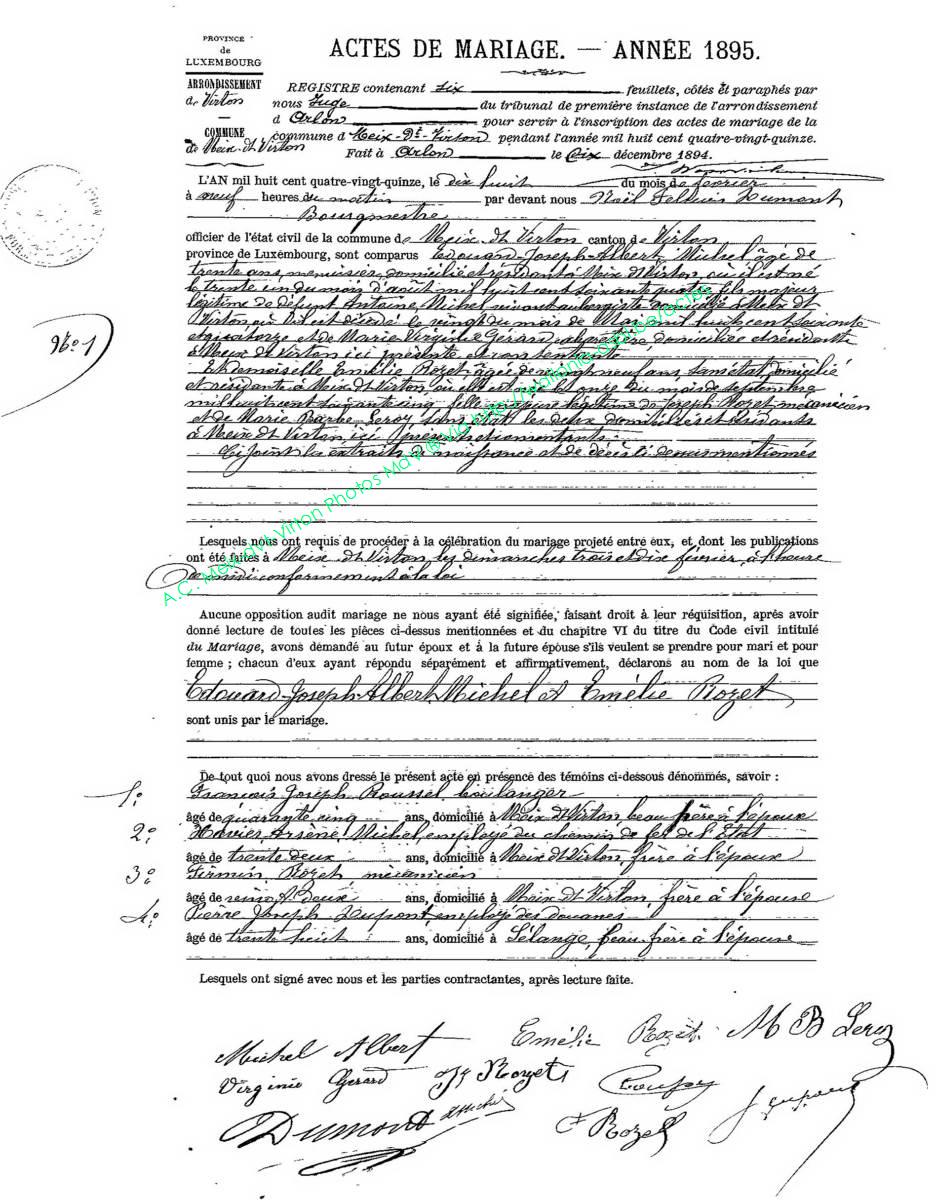 PROVINCE
de
LUXEMBOURG
ARRONDISSEMENT
de Virton
COMMUNE
de Meix-dt-Virton
ACTES DE MARIAGE. — ANNÉE 1895.
REGISTRE contenant six feuillets, côtés et paraphés par
nous Juge du tribunal de première instance de l'arrondissement
d Arlon pour servir à l'inscription des actes de mariage de la
commune d Meix-Dt-Virton pendant l'année mil huit cent quatre-vingt-quinze.
Fait à Arlon le dix décembre 1894.
L'AN mil huit cent quatre-vingt-quinze, le dix huit du mois de février
à neuf heures du matin par devant nous Noël Dumont
Bourgmestre
officier de l'état civil de la commune de Meix-dt-Virton canton de Virton
province de Luxembourg, sont comparus Edouard Joseph-Albert Michel âgé de
trente ans, menuisier, domicilié et résidant à Meix dt Virton, où il est né
le trente un du mois d'août mil huit cent soixante quatre, fils majeur
légitime de défunt Antoine Michel vivant aubergiste domicilié à Meix dt
Virton où il est décédé le vingt du mois de Mai mil huit cent soixante
et quatorze et de Marie Virginie Gérard domiciliée et résidante
à Meix dt Virton ici présente et consentante
Et demoiselle Emélie Rozet âgée de vingt neuf ans sans état domicilié
et résidante à Meix dt Virton où elle est née le onze du mois de septembre
mil huit cent soixante cinq, fille majeure légitime de Joseph Rozet mécanicien
et de Marie Barbe Leroy, sans état les deux domiciliés et résidants
à Meix dt Virton, ici présents
Ci joint les extraits de naissance et de décès ci dessus mentionnés
Lesquels nous ont requis de procéder à la célébration du mariage projeté entre eux, et dont les publications
ont été faites à Meix dt Virton les dimanches trois et dix février, à l'heure
de midi conformément à la loi
Aucune opposition audit mariage ne nous ayant été signifiée, faisant droit à leur réquisition, après avoir
donné lecture de toutes les pièces ci-dessus mentionnées et du chapitre VI du titre du Code civil intitulé
du Mariage, avons demandé au futur époux et à la future épouse s'ils veulent se prendre pour mari et pour
femme ; chacun d'eux ayant répondu séparément et affirmativement, déclarons au nom de la loi que
Edouard-Joseph-Albert Michel et Emélie Rozet
sont unis par le mariage.
No 1
De tout quoi nous avons dressé le présent acte en présence des témoins ci-dessous dénommés, savoir :
1o François Joseph Roussel, boulanger
âgé de quarante cinq ans, domicilié à Meix dt Virton, beau frère à l'époux
2o Xavier Arsène Michel, employé du chemin de fer de l'Etat
âgé de trente deux ans, domicilié à Meix dt Virton, frère à l'époux
3o Firmin Rozet mécanicien
âgé de ans, domicilié à Meix dt Virton, frère à l'épouse
4o Pierre Joseph Dupont, employé des douanes
âgé de trente huit ans, domicilié à Sélange, beau-frère à l'épouse
Lesquels ont signé avec nous et les parties contractantes, après lecture faite.
Michel Albert Emélie Rozet M B Leroy
Virginie Gérard Js Rozet
Dumont A Michel F Rozet J Dupont
A.C. Meix dvt Virton Photos